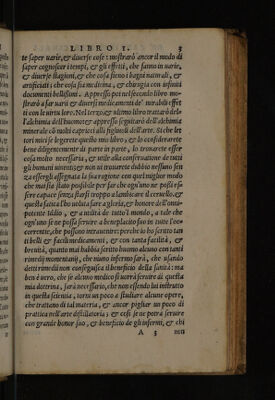 LIBRO I. 3
te saper uarie, & diuerse cose: mostrarò ancor il modo di
saper cognoscer i tempi, & gli effetti, che fanno in uarie,
& diuerse stagioni, & che cosa sieno i bagni naturali, &
artificiati: che cosa sia medicina, & chirurgia con infiniti
documenti bellissimi. Appresso poi nel secondo libro mo-
strarò a far uarij & diuersi medicamenti de' mirabili effet
ti con le uirtù loro. Nel terzo & ultimo libro trattarò del
l'alchimia dell'huomo & appresso seguitarò dell'alchimia
minerale cō molti capricci alli figliuoli dell'arte. Si che let
tori miei se legerete questo mio libro, & lo considerarete
bene diligentemente di parte in parte, lo trouarete esser
cosa molto necessaria, & utile alla conseruatione de tutti
gli humani uiuenti: & non ue trouarete dubbio nessuno sen
za essergli assegnata la sua ragione con quel miglior modo
che mai sia stato possibile per far che ogn'uno ne possi es
sere capace senza starsi troppo a lambiccar il ceruello. &
questa fatica l'ho uoluta fare a gloria, & honore dell'onni-
potente Iddio, & a utilità de tutto'l mondo, a tale che
ogn'uno se ne possa seruire a beneplacito suo in tutte l'oc
correntie, che possono intrauenire: perche io ho scritto tan
ti belli & facili medicamenti, & con tanta facilità, &
breuità, quanto mai habbia scritto huomo alcuno con tanti
rimedij momentanij, che niuno infermo sarà, che usando
detti rimedij non conseguisca il beneficio della sanità: ma
ben è uero, che se alcuno medico si uorrà seruire di questa
mia dottrina, sarà necessario, che non essendo lui instrutto
in questa scientia, torni un poco a studiare alcune opere,
che trattano di tal materia, & ancor pigliar un poco di
prattica nell'arte distillatoria; & così se ne potrà seruire
con grande honor suo, & beneficio de gli infermi, & chi
A 3 uuo